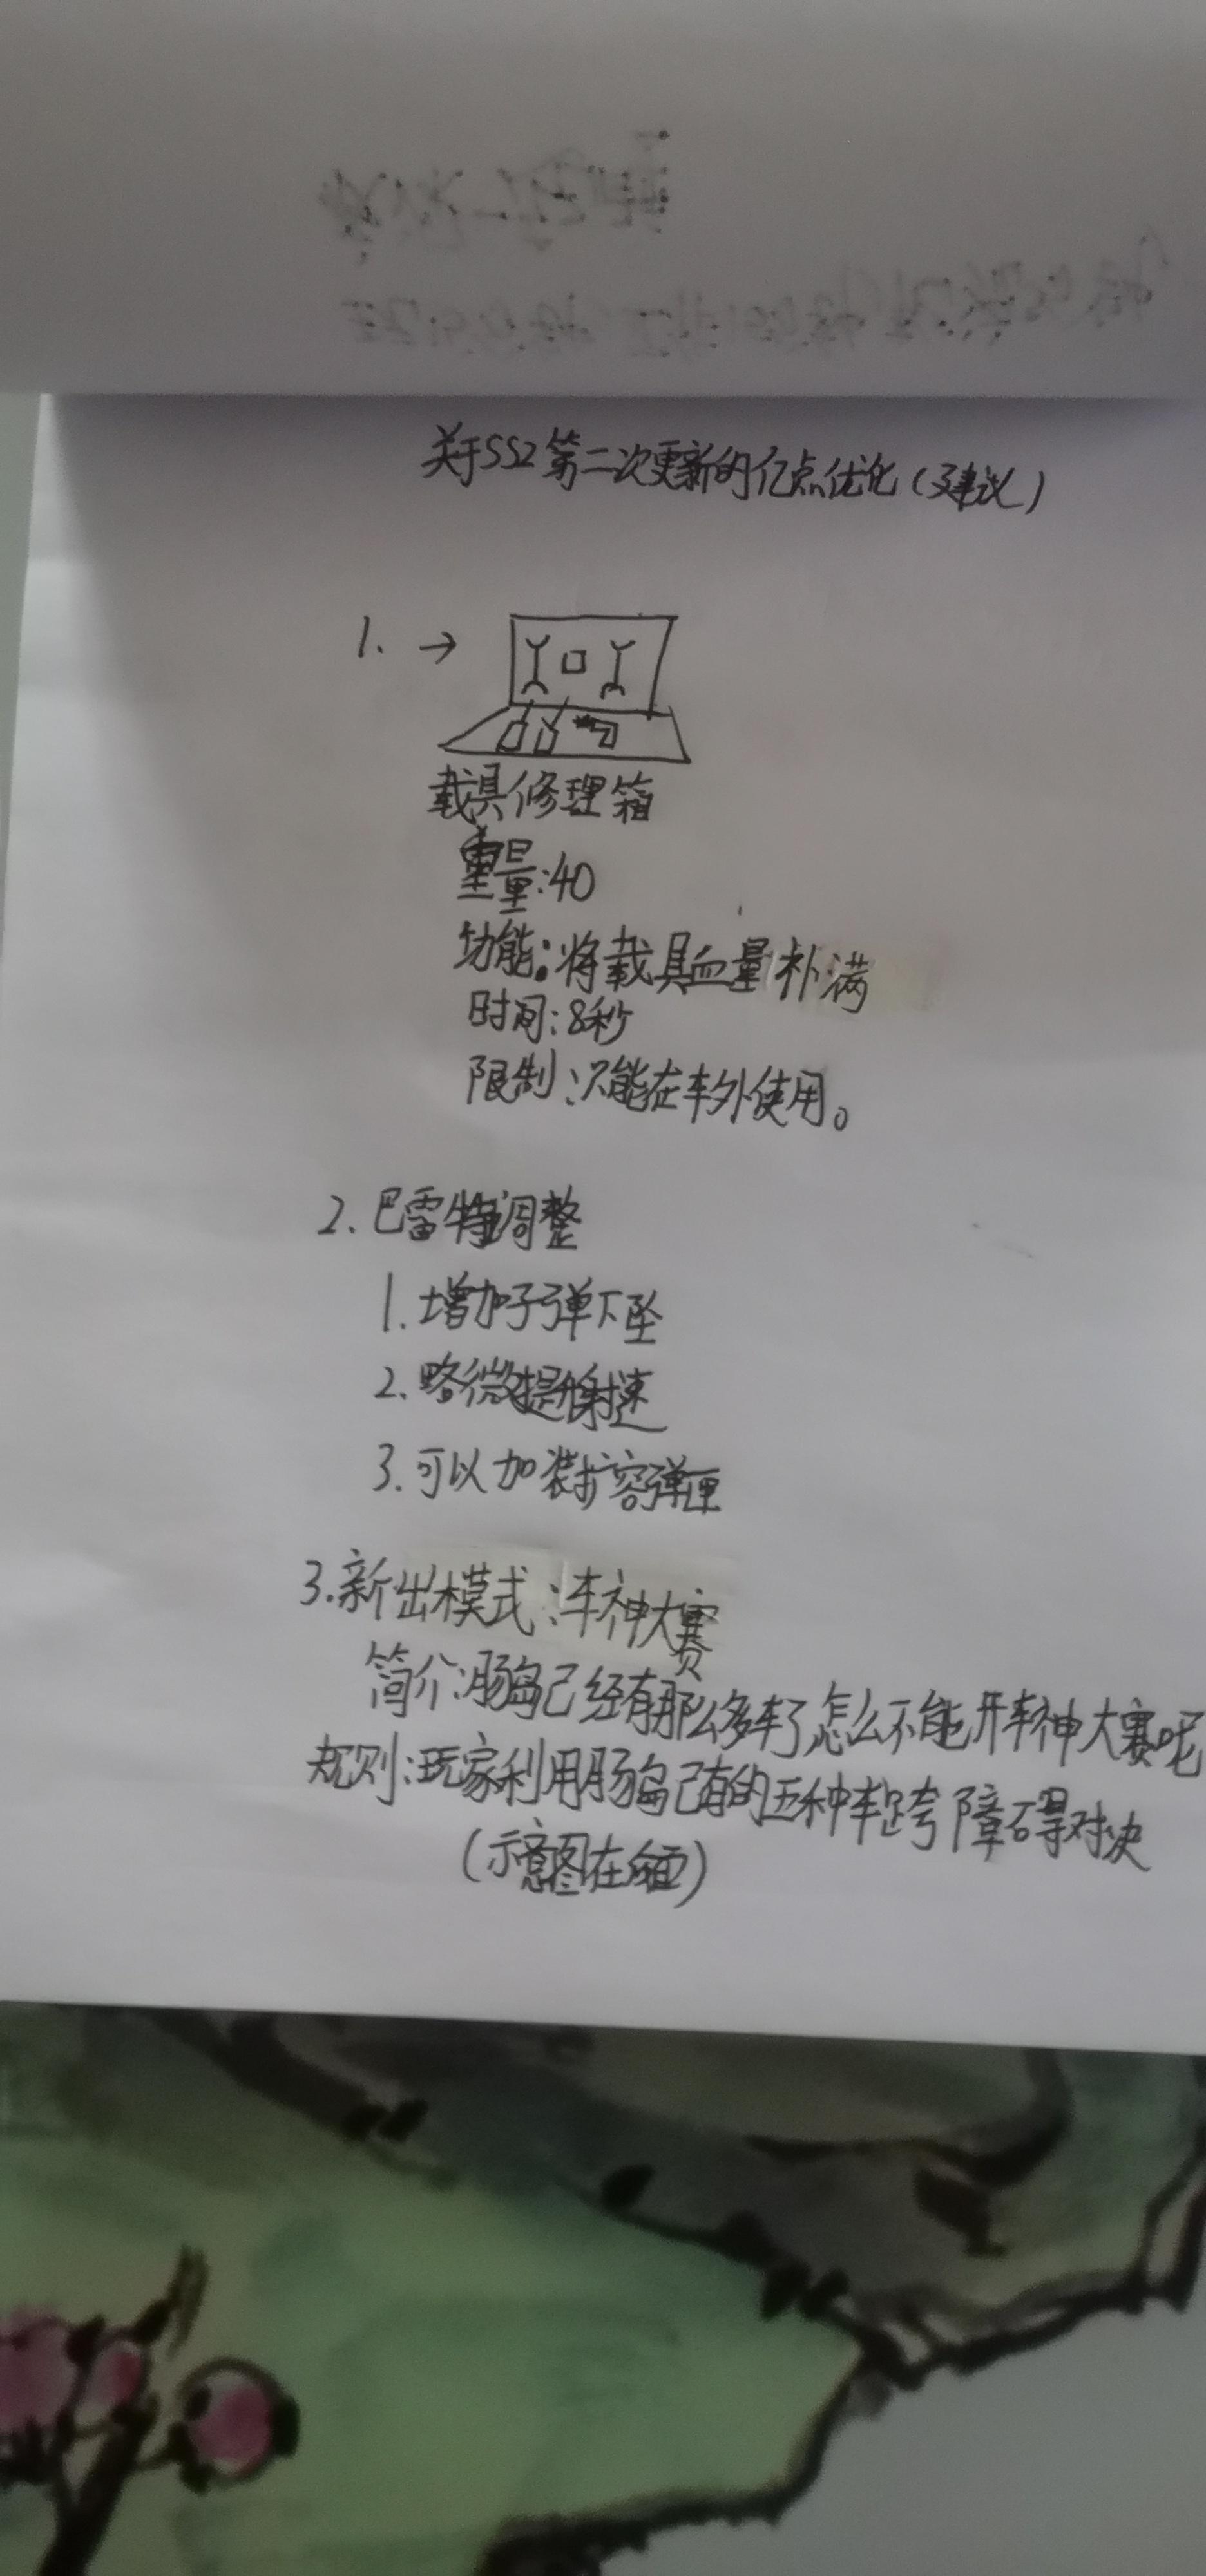 关于SS2第二次更新的亿点优化(建议)
1. →
载具修理箱
重量:40
功能:将载具血量补满
时间:8秒
限制:只能在车外使用。
2.巴雷特调整
1.增加子弹下坠
2.略微提升射速
3.可以加装扩容弹匣
3.新出模式:车神大赛
简介:肠岛已经有那么多车了怎么不能开车神大赛呢
规则:玩家利用肠岛已有的五种车跨障碍对决
(示意图在后面)